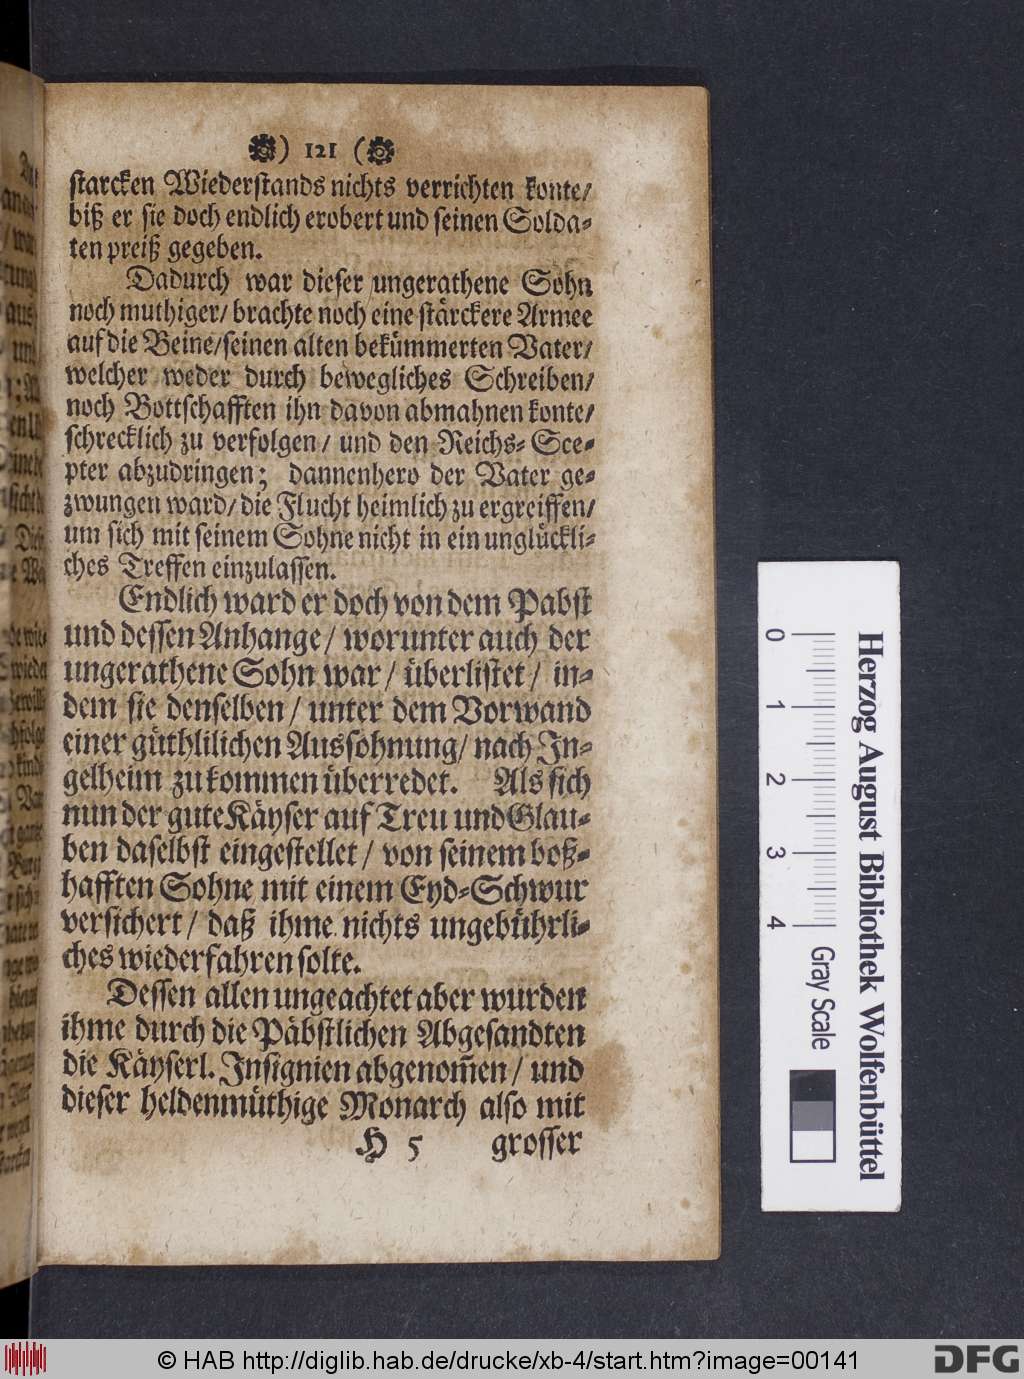 ) 121 (
starcken Wiederstands nichts verrichten konte/
biß er sie doch endlich erobert und seinen Solda-
ten preiß gegeben.
Dadurch war dieser ungerathene Sohn
noch muthiger/ brachte noch eine stärckere Armee
auf die Beine/ seinen alten bekümmerten Vater/
welcher weder durch bewegliches Schreiben/
noch Bottschafften ihn davon abmahnen konte/
schrecklich zu verfolgen/ und den Reichs-Sce-
pter abzudringen; dannenhero der Vater ge-
zwungen ward/ die Flucht heimlich zu ergreiffen/
um sich mit seinem Sohne nicht in ein unglückli-
ches Treffen einzulassen.
Endlich ward er doch von dem Pabst
und dessen Anhange/ worunter auch der
ungerathene Sohn war/ überlistet/ in-
dem sie denselben/ unter dem Vorwand
einer güthlilichen Aussohnung/ nach In-
gelheim zu kommen überredet. Als sich
nun der gute Käyser auf Treu und Glau-
ben daselbst eingestellet/ von seinem boß-
hafften Sohne mit einem Eyd-Schwur
versichert/ daß ihme nichts ungebührli-
ches wiederfahren solte.
Dessen allen ungeachtet aber wurden
ihme durch die Päbstlichen Abgesandten
die Käyserl. Insignien abgenom̃en/ und
dieser heldenmüthige Monarch also mit
H 5 grosser
Herzog August Bibliothek Wolfenbüttel
0 1 2 3 4 Gray Scale
© HAB http://diglib.hab.de/drucke/xb-4/start.htm?image=00141
DFG